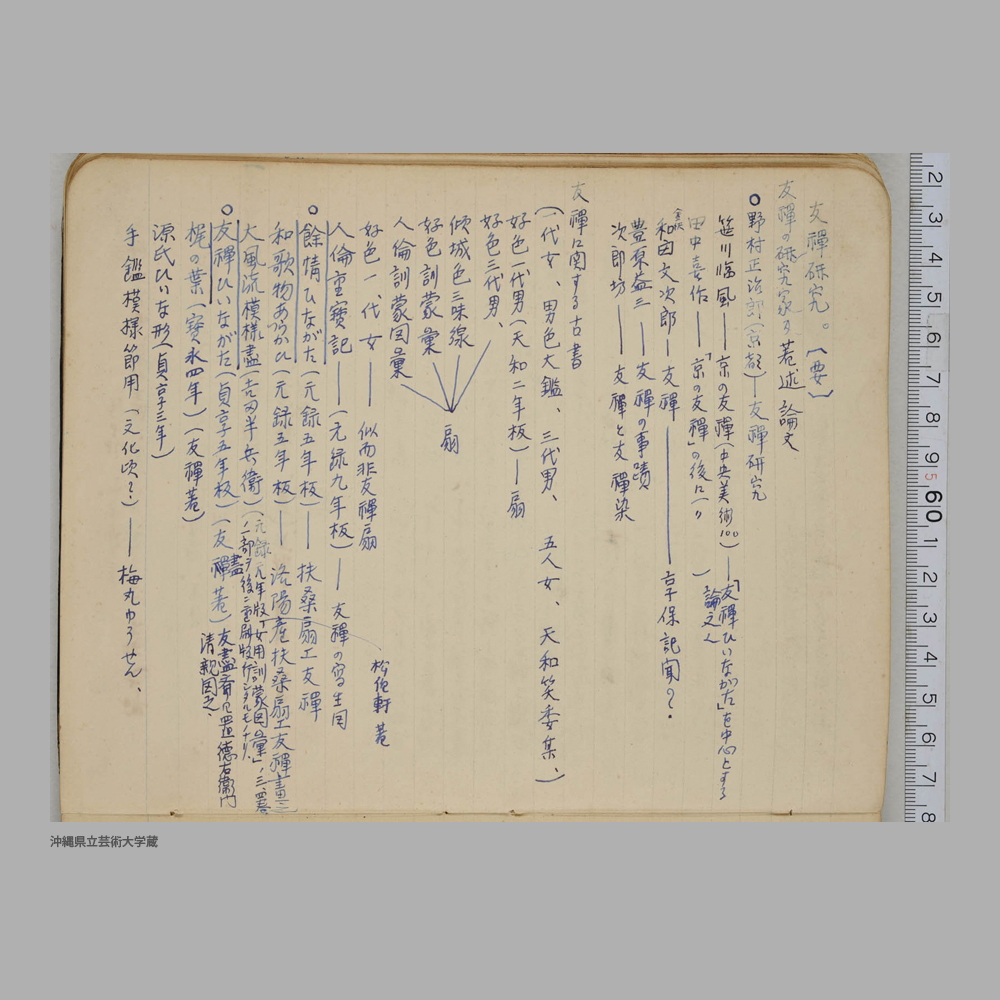 友禪研究。（要）
友禪の研究家ヲ著述論文
○野村正治郎（京都）―友禪研究
笹川臨風――京の友禪（中央美術100）―「友禪ひいながた」を中心とする論文
田中喜作――「京の友禪」の後に（〃）
和田文次郎――友禪――享保記聞？．
豊原益三――友禪の事蹟
次郎坊――友禪と友禪染
友禪に関する古書
（一代女、男色大鑑、三代男、五人女、天和笑委集、）
好色一代男（天和二年板）――扇
好色三代男、
傾城色三味線
好色訓蒙彙
人倫訓蒙図彙
扇
好色一代女――似而非友禪扇
人倫重寶記――（元録九年板）――友禪の寫生図
松伯軒著
○餘情ひながた（元録五年板）――扶桑扇工友禪
和歌物あらかひ（元録五年板）――洛陽産扶桑扇工友禪畫之
大風流模様盡（吉田半兵衛）（元録元年版「女用訓蒙図彙」ノ三、四巻
○友禪ひいながた（貞享五年板）（友禪著）友盡斎日置徳右衛門
清親図之、
梶の葉（寳永四年）（友禪著）
源氏ひいな形（貞享三年）
手鑑模様節用（文化頃？）――梅丸ゆうせん、
2 3 4 5 6 7 8 9 5 60 1 2 3 4 5 6 7 8
沖縄県立芸術大学蔵